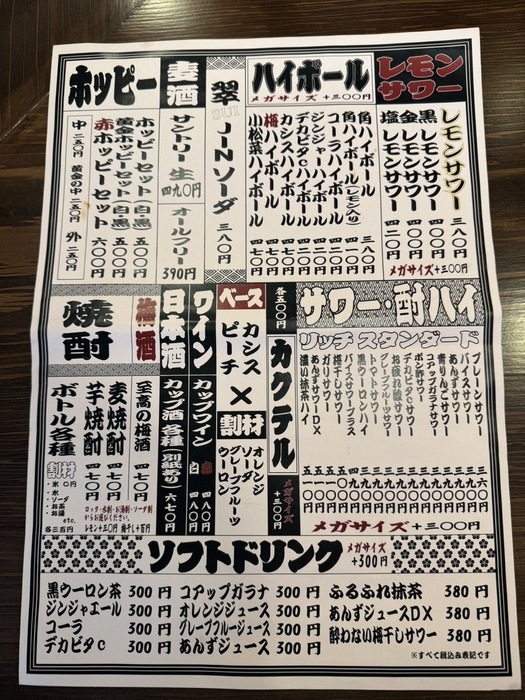 レモンサワー
レモンサワー 三八〇円
黒レモンサワー 四〇〇円
金レモンサワー 四二〇円
塩レモンサワー
メガサイズ+三〇〇円
ハイボール
メガサイズ +三〇〇円
角ハイボール 三八〇円
角ハイボール(レモン入り)
コーラハイボール
ジンジャーハイボール
デカビタCハイボール
カシスハイボール
梅ハイボール 四七〇円
小松菜ハイボール 四七〇円
翠
SUI
JINソーダ 三八〇円
麦酒
サントリー生 四九〇円
オールフリー 390円
ホッピー
ホッピーセット(白・黒) 五〇〇円
黄金ホッピーセット(白・黒) 五〇〇円
赤ホッピーセット 六〇〇円
中 二五〇円 黄金の中 二五〇円 外 二五〇円
サワー・酎ハイ
スタンダード
プレーンサワー
バイスサワー
あんずサワー
青りんごサワー
コアップガラナサワー
ポン酢サワー
デカビタCサワー
お疲れ酸サワー
グレープフルーツサワー
トマトサワー
黒ウーロンハイ
リッチ
バイスサワープラス
梅干しサワー
ガリサワー
あんずサワーDX
濃い抹茶ハイ
メガサイズ +三〇〇円
各五〇〇円
カクテル
メガサイズ+三〇〇円
ベース
カシス
ピーチ
×
割材
オレンジ
ソーダ
グレープフルーツ
ウーロン
ワイン
カップワイン 赤 四八〇円
白 四八〇円
日本酒
カップ酒 各種(別紙あり) 六七〇円
梅酒
至高の梅酒 四七〇円
焼酎
麦焼酎 四七〇円
芋焼酎 四七〇円
ロック・水割・お湯割・ソーダ割
からお選びください。
レモン+三〇円 梅干し+百円
ボトル各種
割材
・氷 〇円
・水
・ソーダ
・お茶
・お湯
etc.
各三百円
ソフトドリンク
メガサイズ
+300円
黒ウーロン茶 300円
ジンジャエール 300円
コーラ 300円
デカビタC 300円
コアップガラナ 300円
オレンジジュース 300円
グレープフルージュース 300円
あんずジュース 300円
ふるふれ抹茶 380円
あんずジュースDX 380円
酔わない梅干しサワー 380円
※すべて税込み表記です